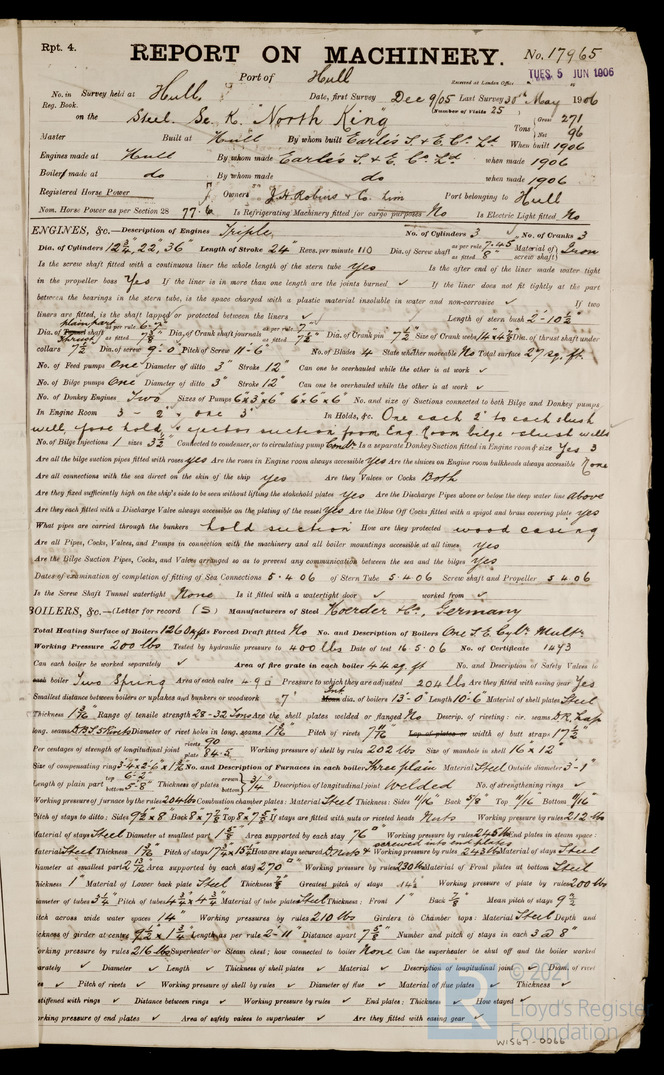 Rpt. 4.
REPORT ON MACHINERY.
No. 17965
Port of Hull
Received at London Office
TUES. 5 JUN 1906
No. in Survey held at Hull Date, first Survey Dec 9/05 Last Survey 30th May 1906
Reg. Book. (Number of Visits 25
on the Steel Sc. K. "North King" Tons Gross 271 Net 96
Master Built at Hull By whom built Earle's S. & E. Co. Ld When built 1906
Engines made at Hull By whom made Earle's S. & E. Co. Ld when made 1906
Boilers made at do By whom made do when made 1906
Registered Horse Power Owners J. H. Robins & Co. Lim Port belonging to Hull
Nom. Horse Power as per Section 28 77.6 Is Refrigerating Machinery fitted for cargo purposes No Is Electric Light fitted No
ENGINES, &c.—Description of Engines Triple No. of Cylinders 3 No. of Cranks 3
Dia. of Cylinders 12¾, 22, 36" Length of Stroke 24" Revs. per minute 110 Dia. of Screw shaft as per rule 7.45 as fitted 8" Material of screw shaft Iron
Is the screw shaft fitted with a continuous liner the whole length of the stern tube Yes Is the after end of the liner made water tight
in the propeller boss Yes If the liner is in more than one length are the joints burned ✓ If the liner does not fit tightly at the part
between the bearings in the stern tube, is the space charged with a plastic material insoluble in water and non-corrosive ✓ If two
liners are fitted, is the shaft lapped or protected between the liners ✓ Length of stern bush 2'-10½"
Dia. of Crank shaft journals as per rule 7" as fitted 7½" Dia. of Crank pin 7½" Size of Crank webs Dia. of thrust shaft under
collars 7½" Dia. of screw 9'-0" Pitch of Screw 11'-6" No. of Blades 4 State whether moveable No Total surface 27 sq. ft.
No. of Feed pumps One Diameter of ditto 3" Stroke 12" Can one be overhauled while the other is at work ✓
No. of Bilge pumps One Diameter of ditto 3" Stroke 12" Can one be overhauled while the other is at work ✓
No. of Donkey Engines Two Sizes of Pumps 6x3x6" 6x6x6" No. and size of Suctions connected to both Bilge and Donkey pumps
In Engine Room 3 - 2", one 3" In Holds, &c. One each 2" to each slush
well, fore hold, & ejector suction from Eng. Room bilge & slush wells
No. of Bilge Injections 1 sizes 3½" Connected to condenser, or to circulating pump Condr Is a separate Donkey Suction fitted in Engine room & size Yes 3
Are all the bilge suction pipes fitted with roses yes Are the roses in Engine room always accessible Yes Are the sluices on Engine room bulkheads always accessible None
Are all connections with the sea direct on the skin of the ship yes Are they Valves or Cocks Both
Are they fixed sufficiently high on the ship's side to be seen without lifting the stokehold plates yes Are the Discharge Pipes above or below the deep water line above
Are they each fitted with a Discharge Valve always accessible on the plating of the vessel Yes Are the Blow Off Cocks fitted with a spigot and brass covering plate yes
What pipes are carried through the bunkers hold suction How are they protected wood casing
Are all Pipes, Cocks, Valves, and Pumps in connection with the machinery and all boiler mountings accessible at all times yes
Are the Bilge Suction Pipes, Cocks, and Valves arranged so as to prevent any communication between the sea and the bilges yes
Dates of examination of completion of fitting of Sea Connections 5.4.06 of Stern Tube 5.4.06 Screw shaft and Propeller 5.4.06
Is the Screw Shaft Tunnel watertight None Is it fitted with a watertight door ✓ worked from ✓
BOILERS, &c.—(Letter for record (S) Manufacturers of Steel Hoerder & Co., Germany
Total Heating Surface of Boilers Is Forced Draft fitted No No. and Description of Boilers One S.E. Cyl. Mult.
Working Pressure 200 lbs Tested by hydraulic pressure to 400 lbs Date of test 16.5.06 No. of Certificate 1473
Can each boiler be worked separately ✓ Area of fire grate in each boiler 44 sq. ft No. and Description of Safety Valves to
each boiler Two Spring Area of each valve 4.90 Pressure to which they are adjusted 204 lbs Are they fitted with easing gear Yes
Smallest distance between boilers or uptakes and bunkers or woodwork 7" Int. dia. of boilers 13'-0" Length 10'-6" Material of shell plates Steel
Thickness Range of tensile strength 28-32 Tons Are the shell plates welded or flanged No Descrip. of riveting: cir. seams D.R. Lap
long. seams Diameter of rivet holes in long. seams Pitch of rivets Lap of plates or width of butt straps 17½"
Per centages of strength of longitudinal joint rivets 90 plate 84.5 Working pressure of shell by rules 202 lbs Size of manhole in shell 16 x 12"
Size of compensating ring No. and Description of Furnaces in each boiler Three plain Material Steel Outside diameter 3'-1"
Length of plain part top 6'-2" bottom 5'-8" Thickness of plates crown bottom ¾" Description of longitudinal joint Welded No. of strengthening rings ✓
Working pressure of furnace by the rules 204 lbs Combustion chamber plates: Material Steel Thickness: Sides 11/16" Back 5/8" Top 11/16" Bottom 11/16"
Pitch of stays to ditto: Sides Back Top If stays are fitted with nuts or riveted heads Nuts Working pressure by rules 212 lbs
Material of stays Steel Diameter at smallest part Area supported by each stay 76" Working pressure by rules 245 lbs End plates in steam space:
Material Steel Thickness Pitch of stays How are stays secured D Nuts & screwed into end plates Working pressure by rules 243 lbs Material of stays Steel
Diameter at smallest part Area supported by each stay 270 Working pressure by rules 230 lbs Material of Front plates at bottom Steel
Thickness 1" Material of Lower back plate Steel Thickness 7/8 Greatest pitch of stays 14½ Working pressure of plate by rules 200 lbs
Diameter of tubes 3¼" Pitch of tubes Material of tube plates Steel Thickness: Front 1" Back 7/8 Mean pitch of stays 9½
Pitch across wide water spaces 14" Working pressures by rules 210 lbs Girders to Chamber tops: Material Steel Depth and
thickness of girder at centre Length as per rule 2'-11" Distance apart Number and pitch of stays in each 3 @ 8"
Working pressure by rules 216 lbs Superheater or Steam chest; how connected to boiler None Can the superheater be shut off and the boiler worked
separately ✓ Diameter ✓ Length ✓ Thickness of shell plates ✓ Material ✓ Description of longitudinal joint ✓ Diam. of rivet
✓ Pitch of rivets ✓ Working pressure of shell by rules ✓ Diameter of flue ✓ Material of flue plates ✓ Thickness ✓
stiffened with rings ✓ Distance between rings ✓ Working pressure by rules ✓ End plates: Thickness ✓ How stayed ✓
Working pressure of end plates ✓ Area of safety valves to superheater ✓ Are they fitted with easing gear ✓
Lloyd's Register
Foundation
W1567-0066